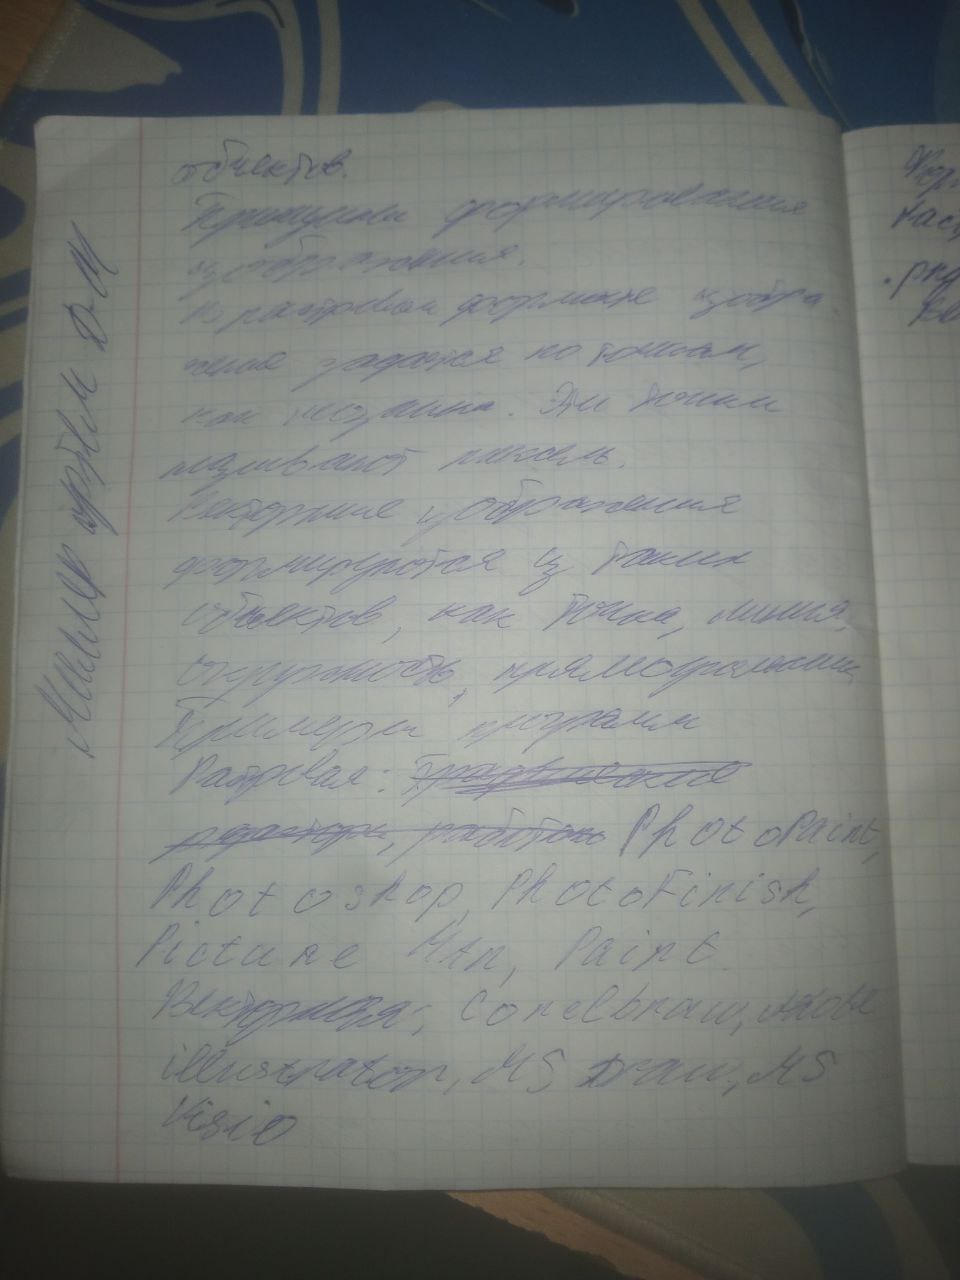 объектов.
Принципы формирования
изображения.
В растровом формате изобра
жение задаётся по точкам,
как мозаика. Эти точки
называют пиксель.
Векторные изображения
формируются из таких
объектов, как точка, линия,
окружность, прямоугольник
Примеры программ
Ратровая: графические
редакторы, работаю PhotoPaint,
Photoshop, PhotoFinish,
Picture Man, Paint.
Векторная: CorelDraw, Adobe
illustrator, MS Draw, MS
Visio
Миллер Артём Д-М